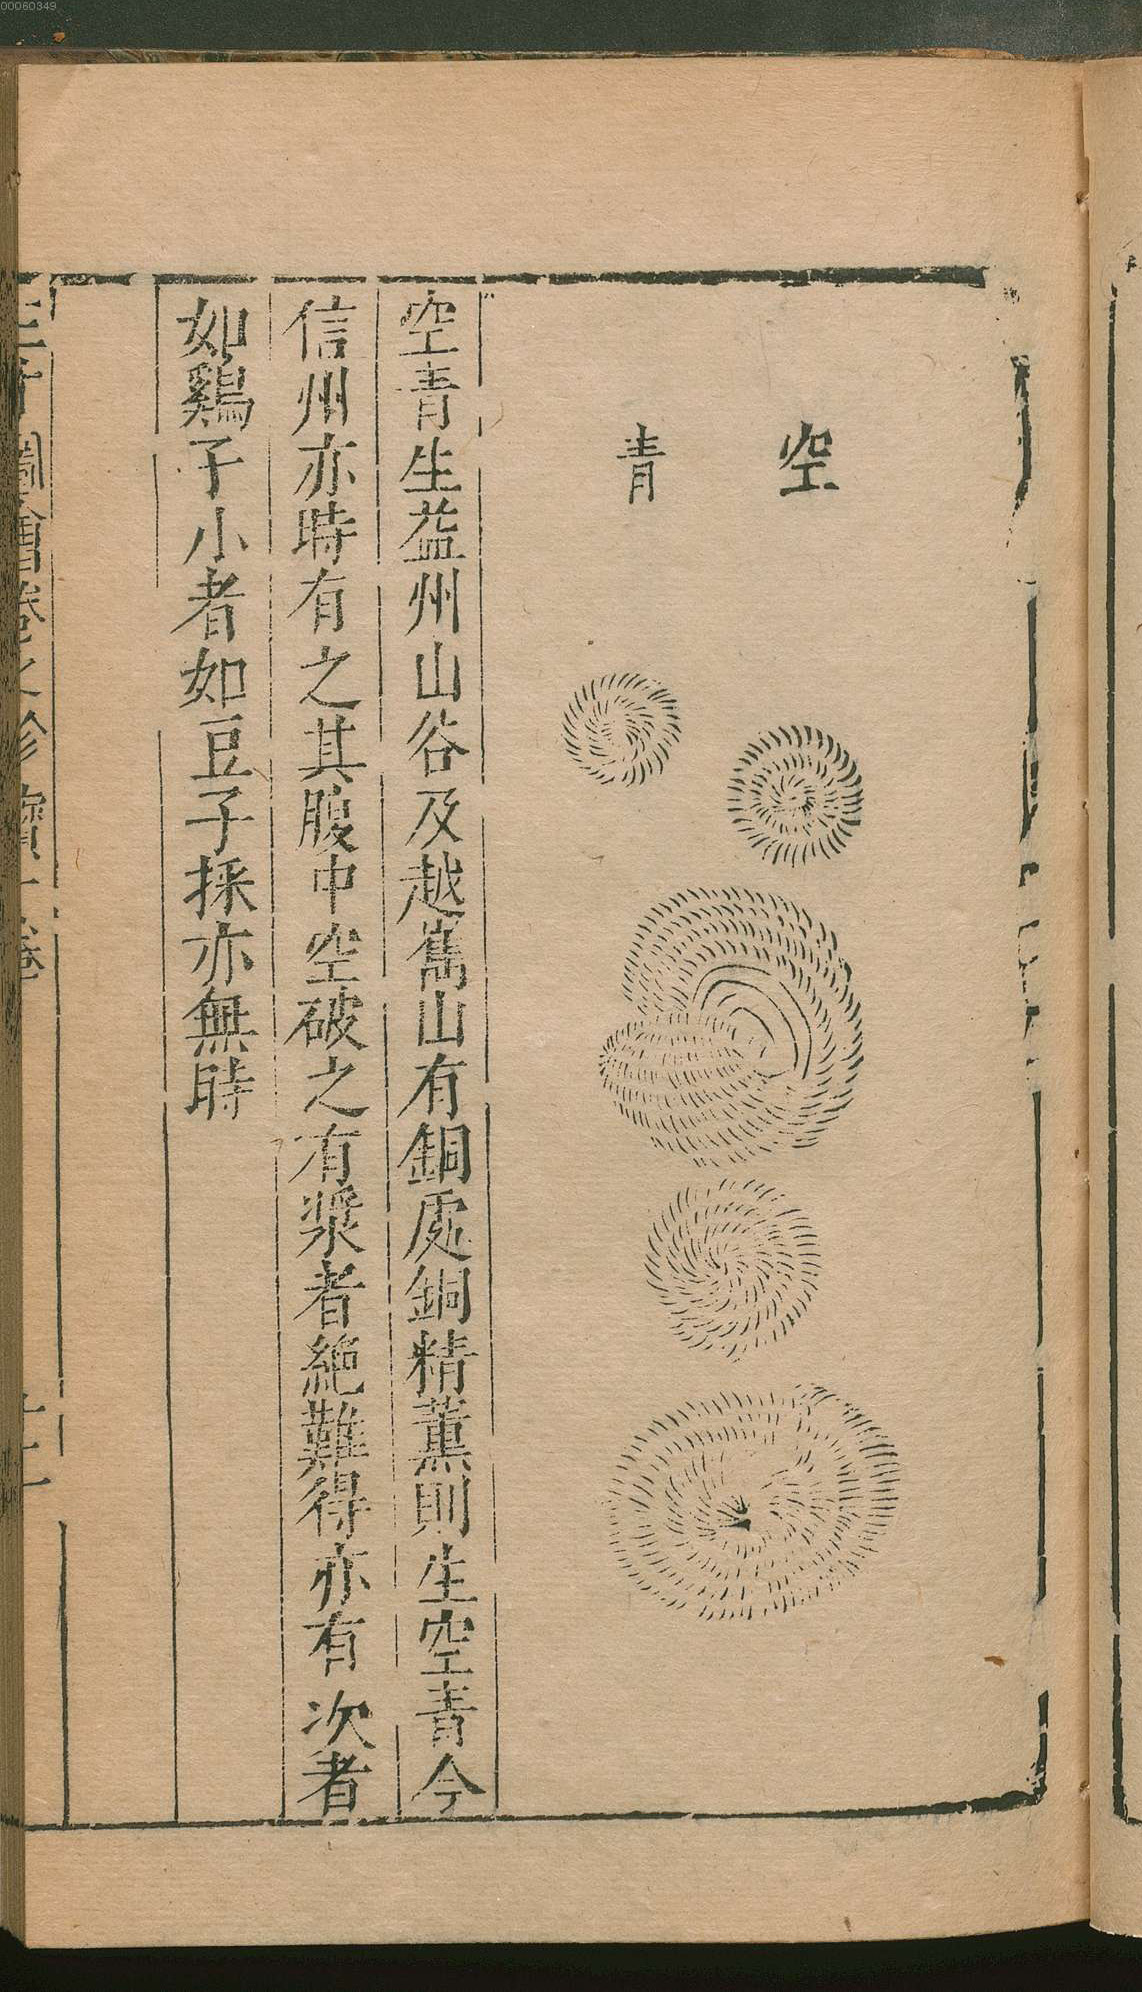 00060349
空青
空青生益州山谷及越嶲山有銅處銅精薰則生空青今
信州亦時有之其腹中空破之有漿者絶難得亦有次者
如鷄子小者如豆子採亦無時
圖會卷之珍寶一卷